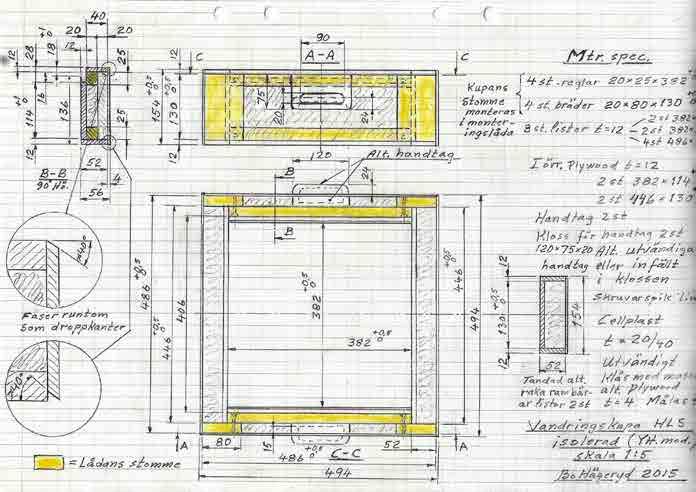 40
20 20
12
12
28
18 +1
25
16
136
114 +1
25
12
52
56
4
B-B
90° Hö.
~40°
Faser runtom
som droppkanter
~40°
= Lådans stomme
90
A-A
C
C
12
154 +0,5 0
130 +0,5 0
12
75
20
24
120
Alt. handtag
24
B
B
486 +0,5 0
446 +0,5 0
406
382 +0,5 0
382 +0,5 0
446 +0,5 0
494
A
A
80
15
52
486 +0,5 0
C-C
494
12
130 +0,5 0
154
12
52
Tandad alt.
raka rambär-
ar listor 2st
Mtr. spec.
Kupans
stomme
monteras
i monter-
ingslåda
4 st. reglar 20×25×382
4 st. bräder 20×80×130
8 st. listor t=12
2st 382
2st 382
4st 486
I övr. Plywood t=12
2 st 382×114
2 st 446×130
Handtag 2st
Kloss för handtag 2st
120×75×20 Alt. utvändiga
handtag eller infällt
i klossen
Skruvar spik
Cellplast
t = 20/40
Utvändigt
Kläs med
alt. plywood
t=4. Målas
Vandringskupa HLS
isolerad (YH.mod.
skala 1:5
Bo Hägeryd 2015